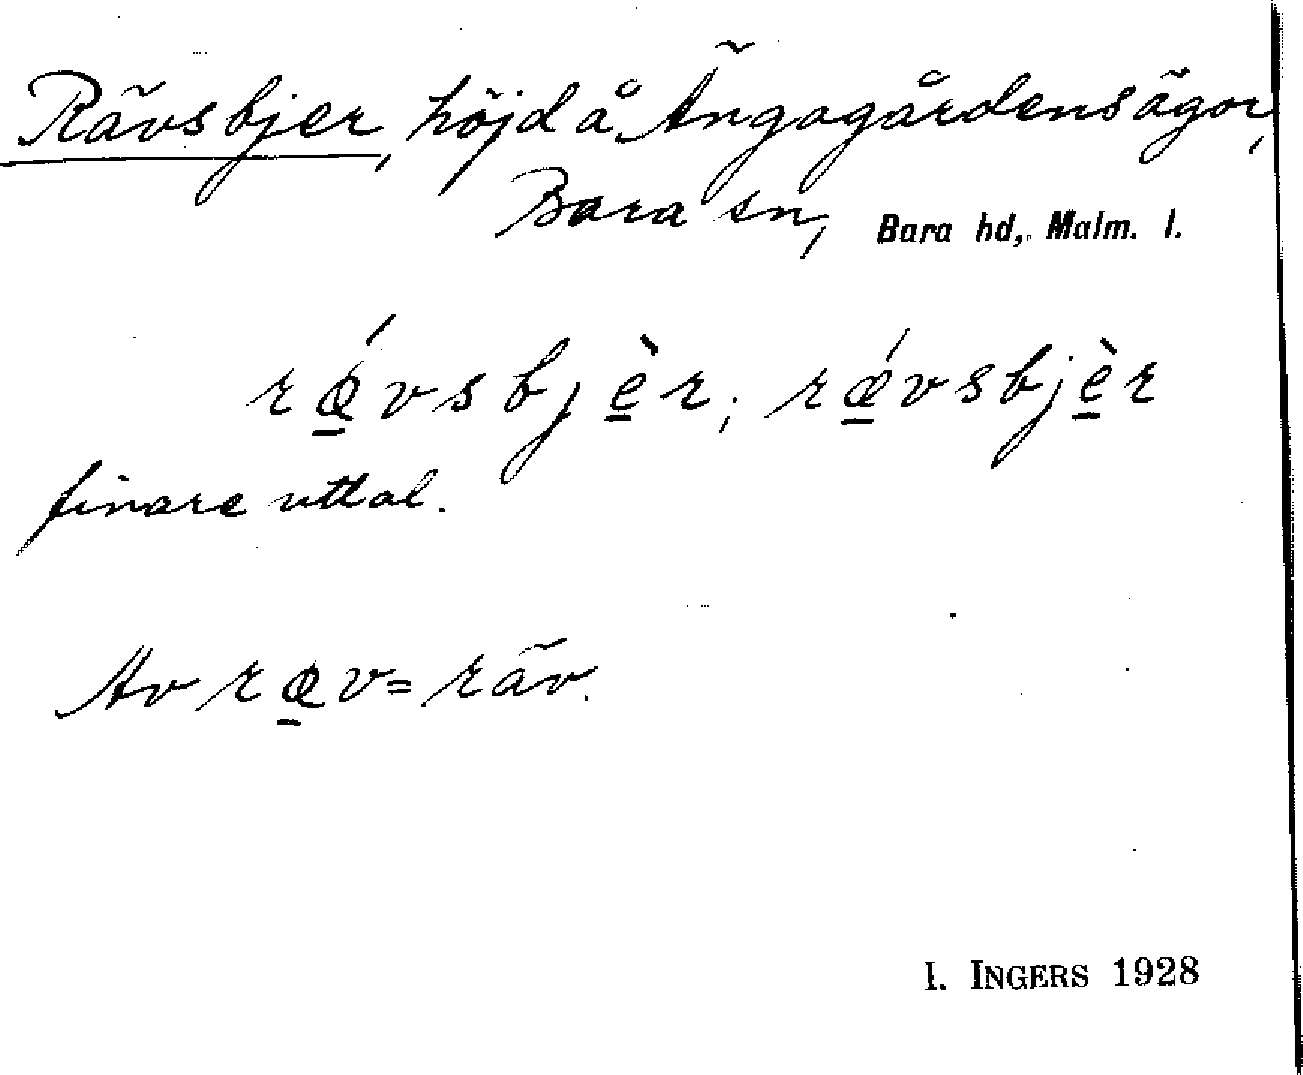 Rävsbjer, höjd å Ängagårdens ägor,
Bara sn, Bara hd, Malm. l.
rǿ̱vsbjè̱r; rǽ̱vsbjè̱r
finare uttal.
Av rø̱v = räv.
I. INGERS 1928